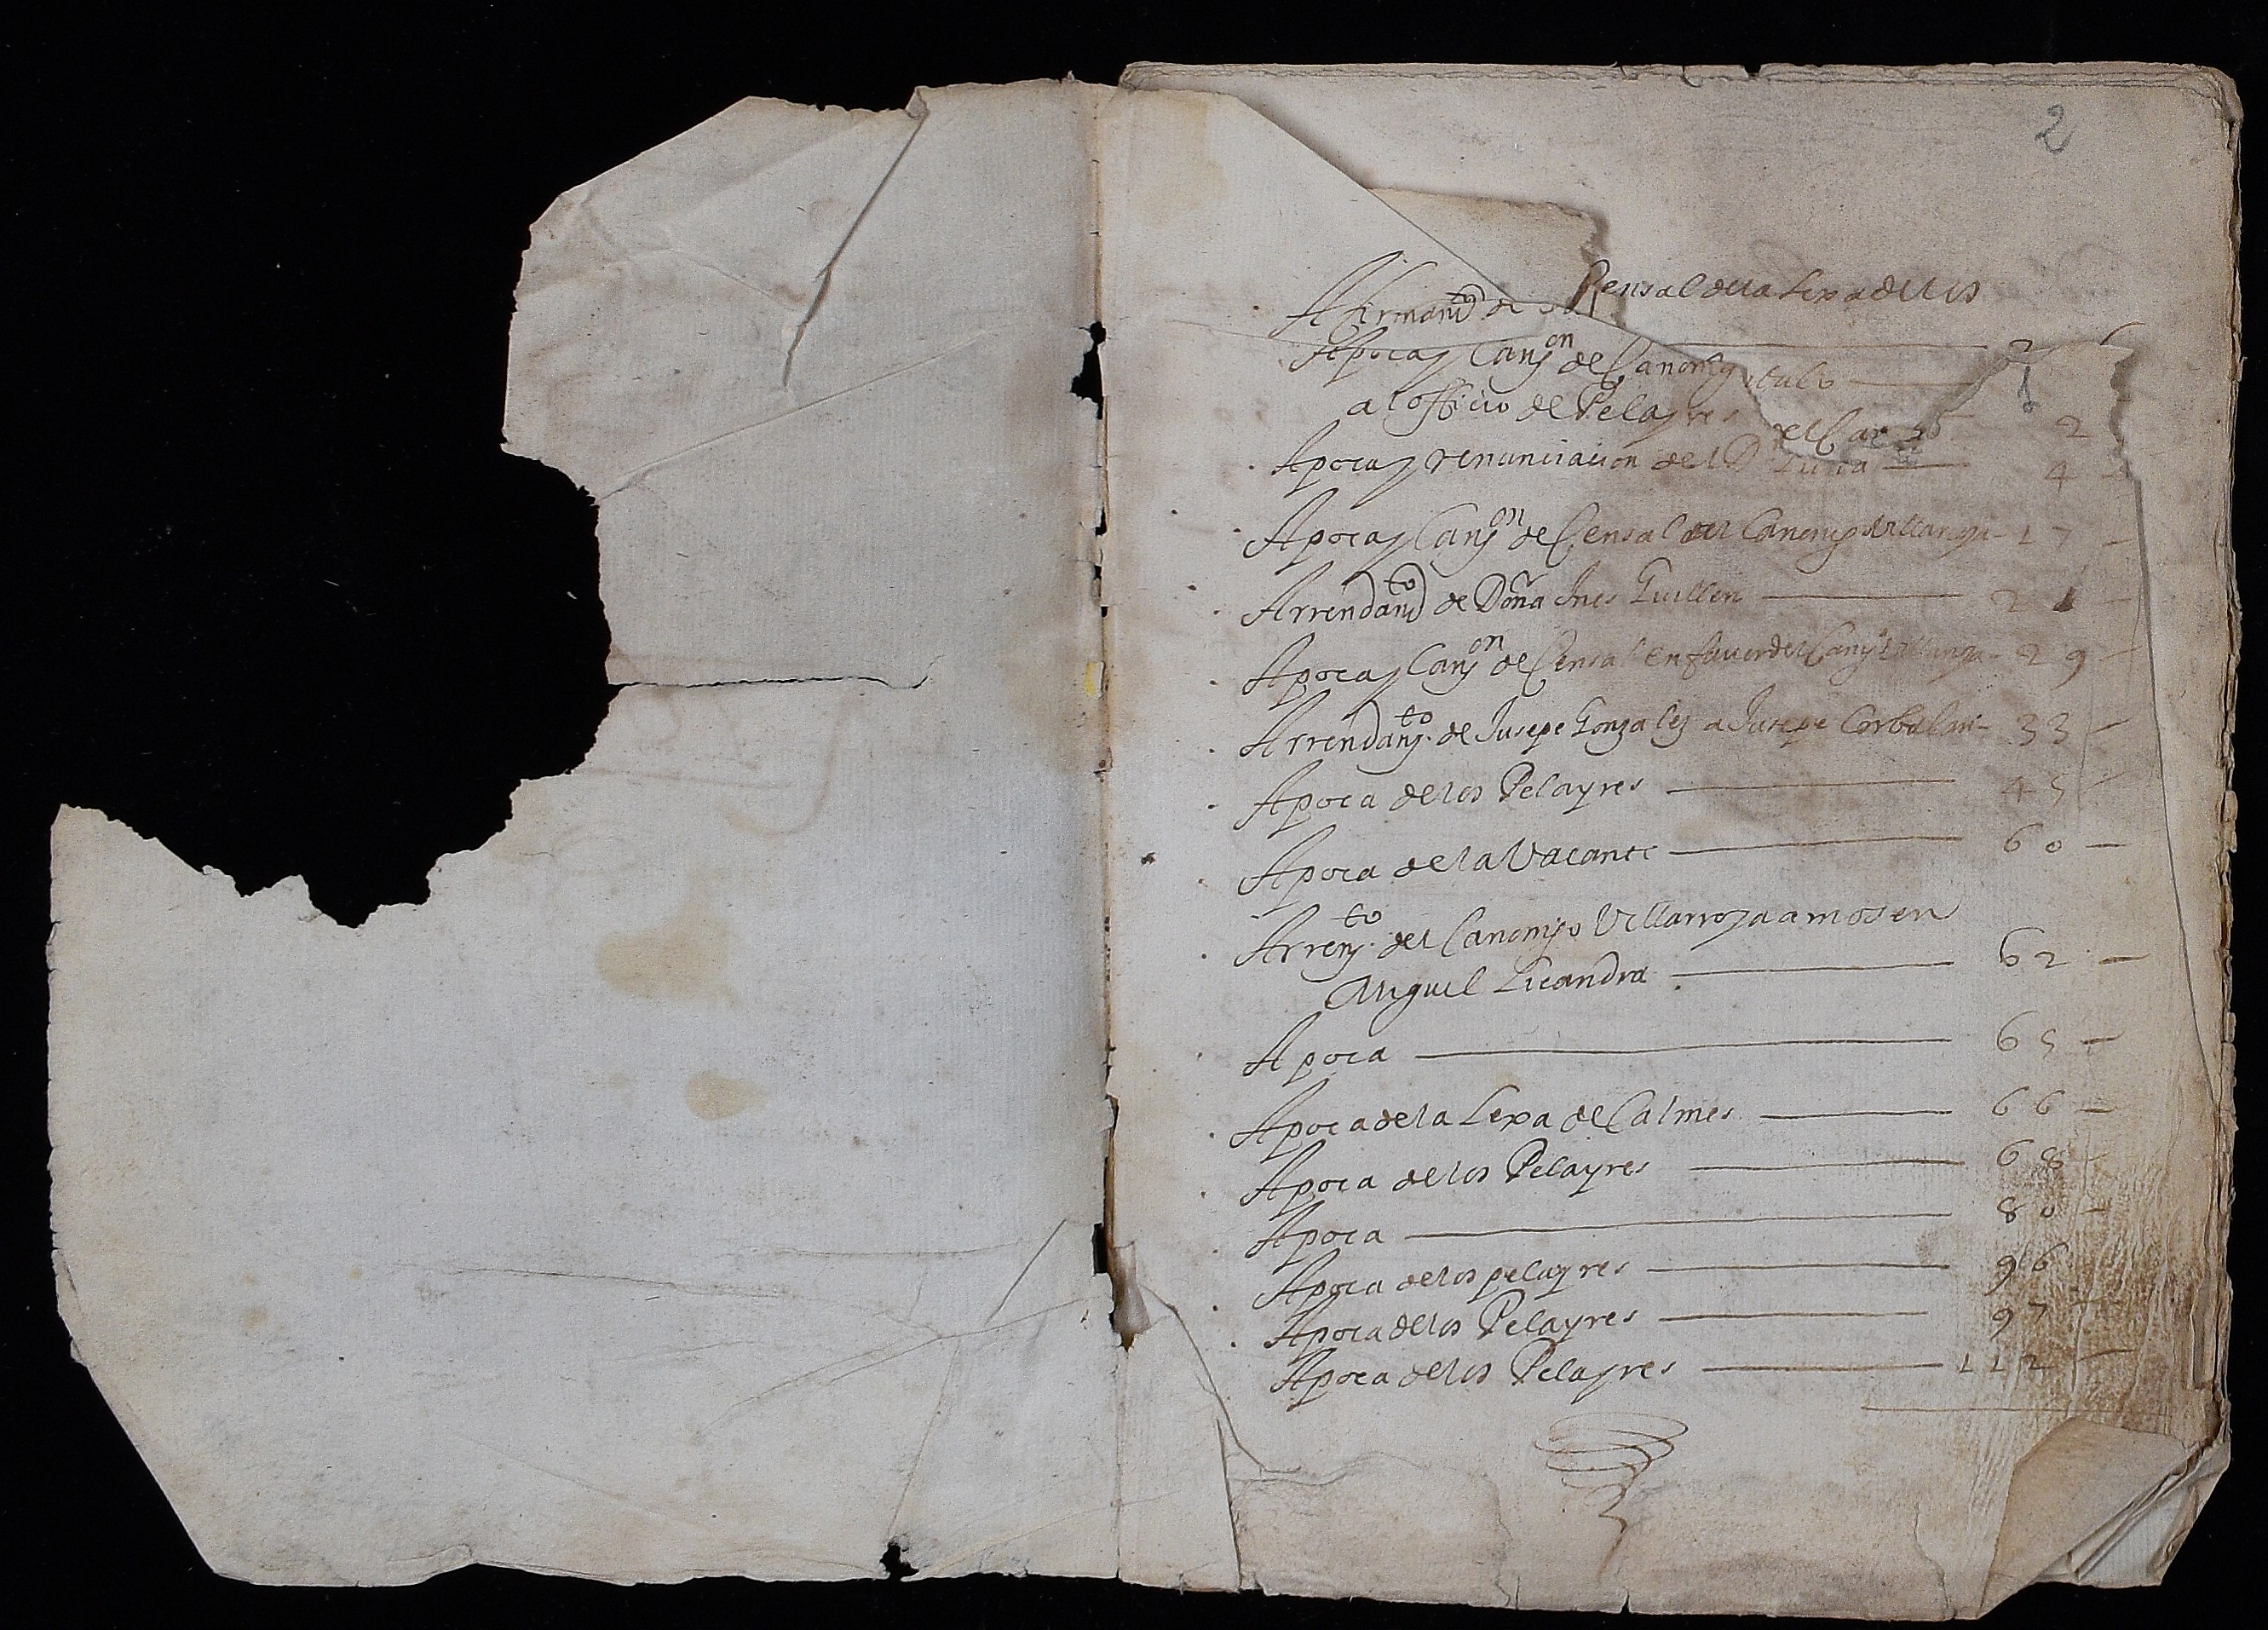 2
Censal de la Lexa de los
Afirmamto de
Apoca y Canon de Canonig tulo
al officio de Pelayres el Car 2
Apoca y renunciacion del Dr Luna — 4
Apoca y Canon de Censal del Canonigo Villaroya — 17 —
Arrendamto de Doña Ines Guillen — 21 —
Apoca y Canon de Censal en favor del Cango Villaroya — 29 —
Arrendamto de Jusepe Gonzalez a Jusepe Corbalan — 33 —
Apoca de los Pelayres — 45 —
Apoca de la Vacante — 60 —
Arremto del Canonigo Villarroya a mosen
Miguel Licandra — 62 —
Apoca — 65 —
Apoca de la Lexa de Calmes — 66 —
Apoca de los Pelayres — 68 —
Apoca — 80 —
Apoca de los pelayres — 96
Apoca de los Pelayres — 97 —
Apoca de los Pelayres — 112 —